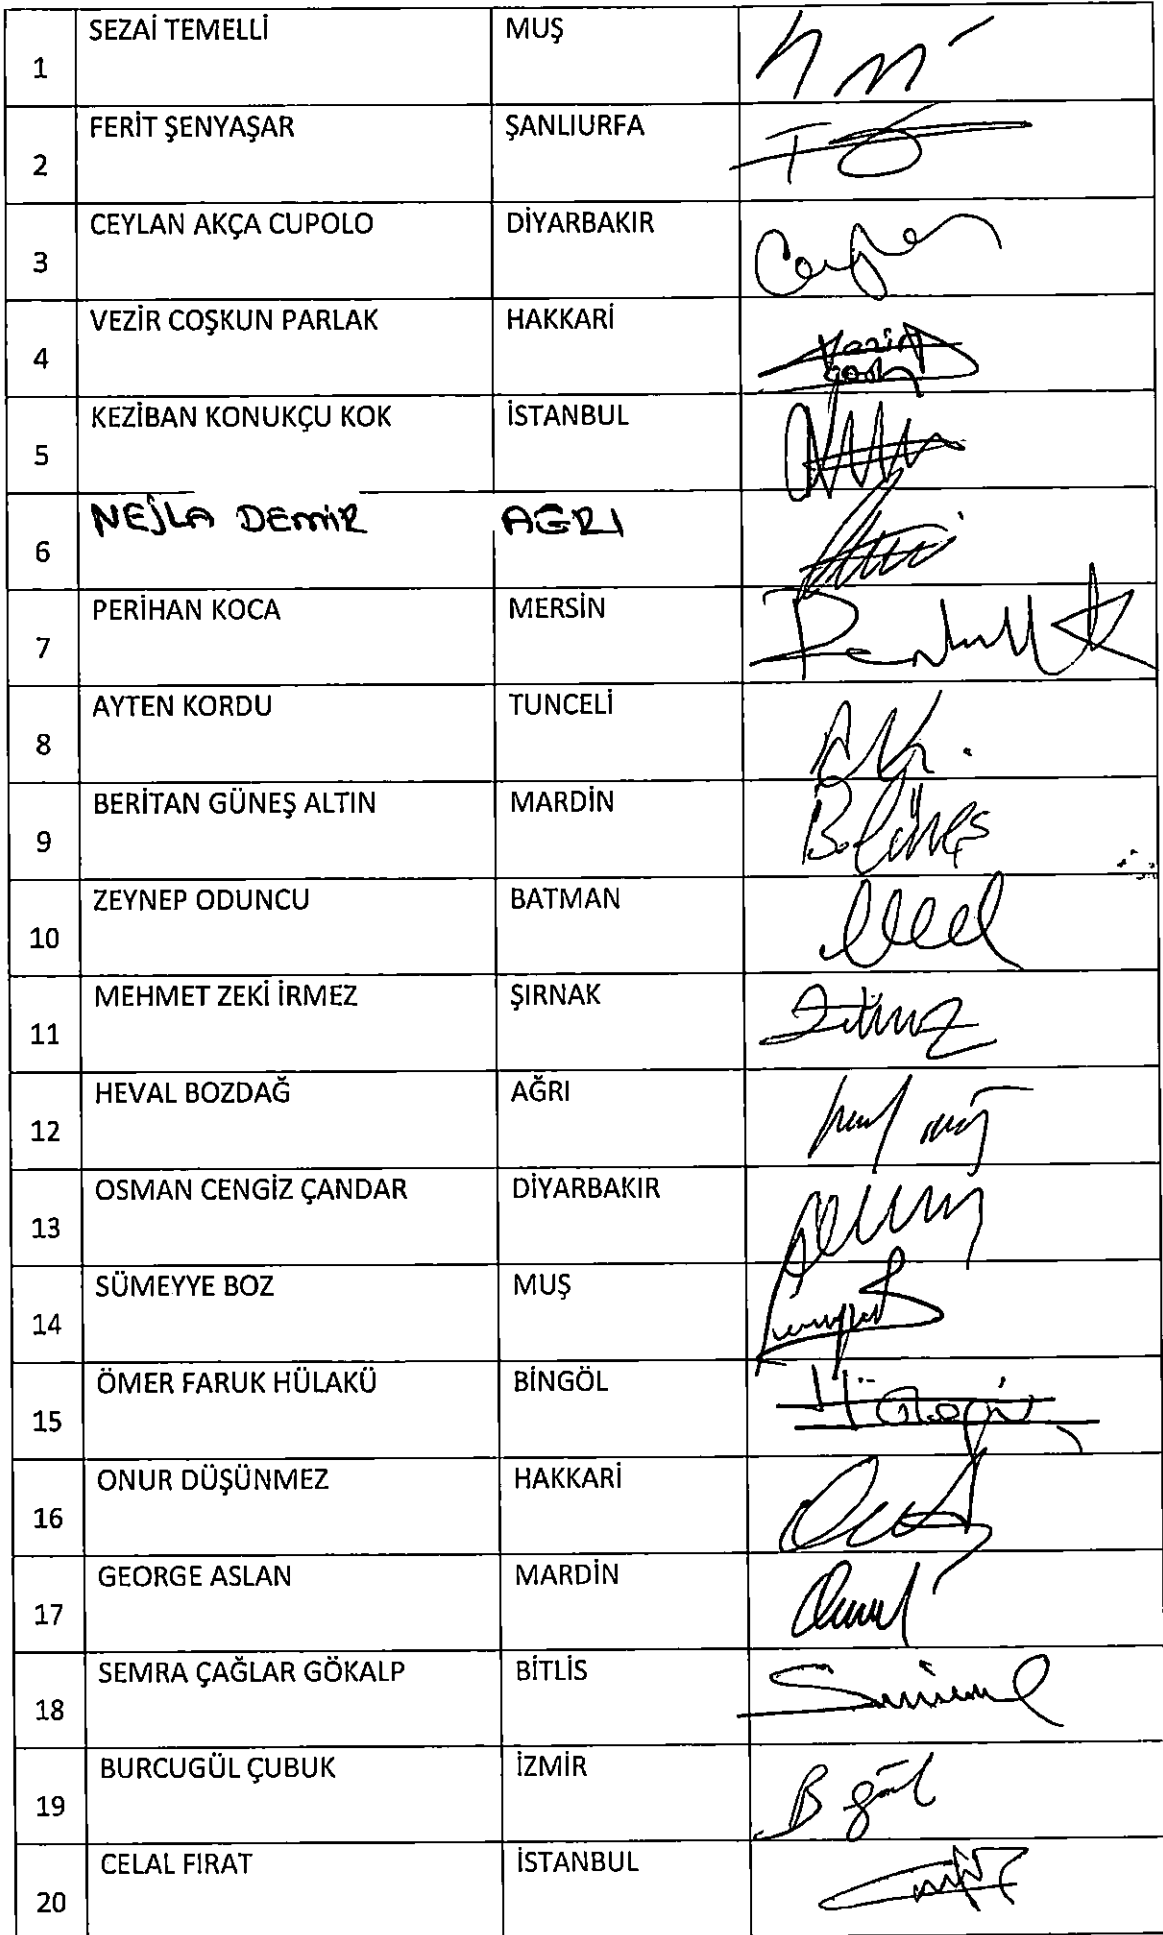 1 SEZAİ TEMELLİ MUŞ
2 FERİT ŞENYAŞAR ŞANLIURFA
3 CEYLAN AKÇA CUPOLO DİYARBAKIR
4 VEZİR COŞKUN PARLAK HAKKARİ
5 KEZİBAN KONUKÇU KOK İSTANBUL
6 NEJLA DEMİR AĞRI
7 PERİHAN KOCA MERSİN
8 AYTEN KORDU TUNCELİ
9 BERİTAN GÜNEŞ ALTIN MARDİN B. Güneş
10 ZEYNEP ODUNCU BATMAN
11 MEHMET ZEKİ İRMEZ ŞIRNAK
12 HEVAL BOZDAĞ AĞRI
13 OSMAN CENGİZ ÇANDAR DİYARBAKIR
14 SÜMEYYE BOZ MUŞ
15 ÖMER FARUK HÜLAKÜ BİNGÖL
16 ONUR DÜŞÜNMEZ HAKKARİ
17 GEORGE ASLAN MARDİN
18 SEMRA ÇAĞLAR GÖKALP BİTLİS
19 BURCUGÜL ÇUBUK İZMİR B gül
20 CELAL FIRAT İSTANBUL